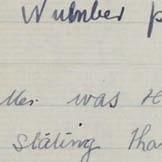 Number p
Mr. was H
Stating Tha